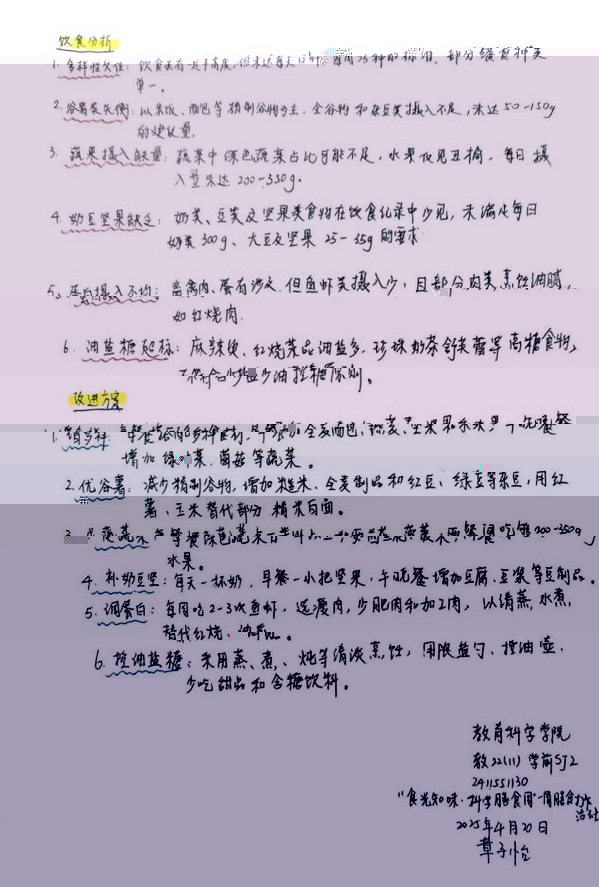 饮食分析
1. 多样性欠佳：饮食虽有一定丰富度，但未达每天12种、每周25种的标准，部分餐食种类
单一。
2. 谷薯类失衡：以米饭、面包等精制谷物为主，全谷物和杂豆类摄入不足，未达50-150g
的建议量。
3. 蔬果摄入缺量：蔬菜中深色蔬菜占比可能不足，水果仅见丑橘，每日摄
入量未达200-350g。
4. 奶豆坚果缺乏：奶类、豆类及坚果类食物在饮食记录中少见，未满足每日
奶类300g、大豆及坚果25-35g的要求
5. 蛋白摄入不均：畜禽肉、蛋有涉及，但鱼虾类摄入少，且部分肉类烹饪油腻，
如红烧肉
6. 油盐糖超标：麻辣烫、红烧菜品油盐多，珍珠奶茶舒芙蕾等高糖食物，
不符合少盐少油控糖原则。
改进方案
全麦面包
增加绿叶菜、菌菇等蔬菜。
2. 优谷薯：减少精制谷物，增加糙米、全麦制品和红豆、绿豆等杂豆，用红
薯、玉米替代部分精米白面。
吃够200-350g
水果。
4. 补奶豆坚：每天一杯奶，早餐一小把坚果，午晚餐增加豆腐、豆浆等豆制品。
5. 调蛋白：每周吃2-3次鱼虾，选瘦肉，少肥肉和加工肉，以清蒸，水煮，
替代红烧、
6. 控油盐糖：采用蒸、煮、炖等清淡烹饪，用限盐勺、控油壶，
少吃甜品和含糖饮料。
教育科学学院
教22(11) 学前SJ2
2411551130
"食光知味·科学膳食周"一周膳食打卡
活动
2025年4月20日
覃子怡